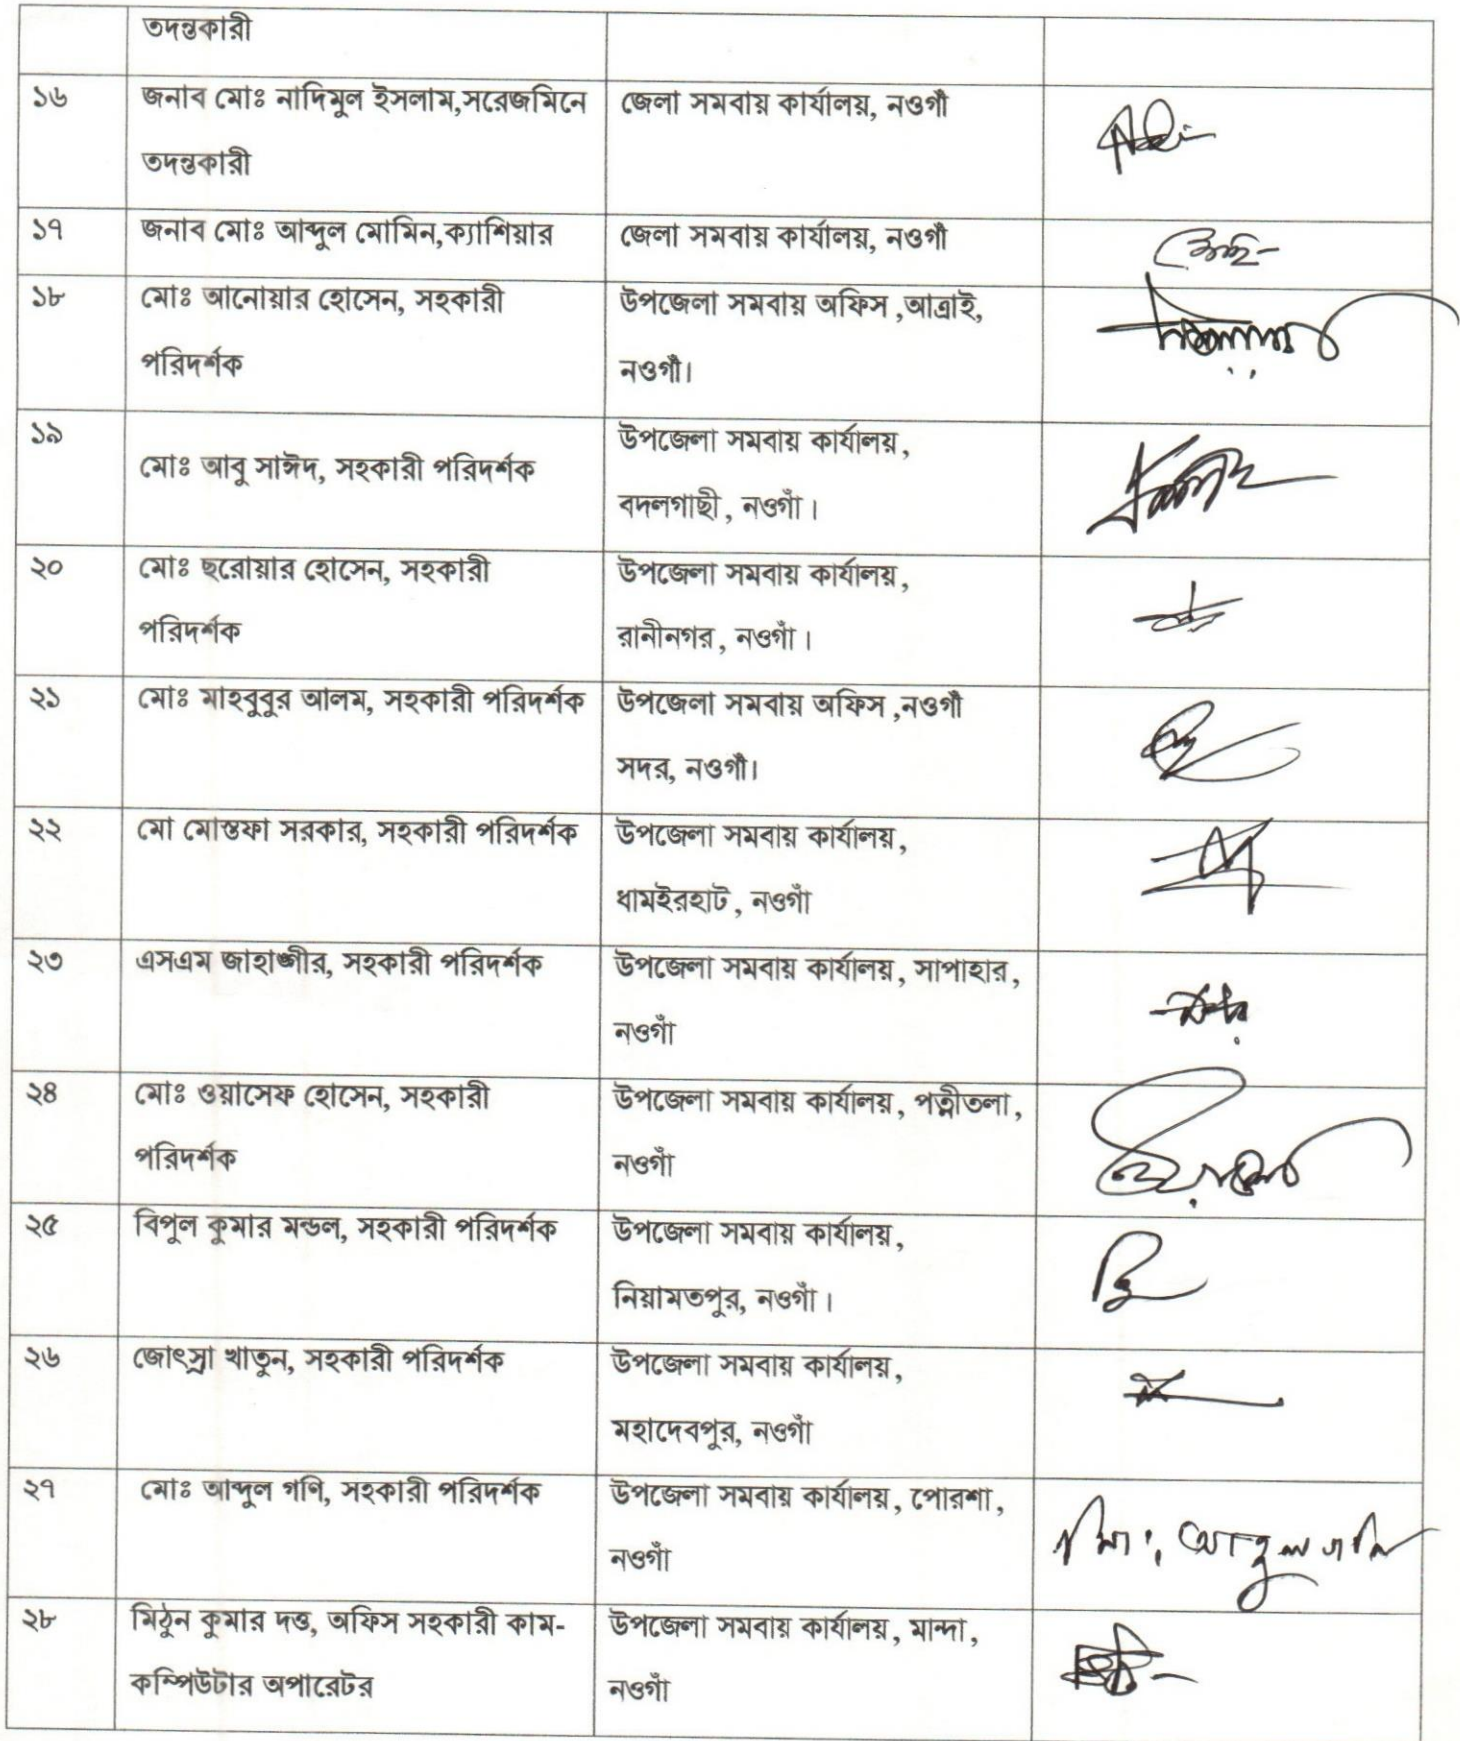 তদন্তকারী
১৬ জনাব মোঃ নাদিমুল ইসলাম,সরেজমিনে জেলা সমবায় কার্যালয়, নওগাঁ
তদন্তকারী
১৭ জনাব মোঃ আব্দুল মোমিন,ক্যাশিয়ার জেলা সমবায় কার্যালয়, নওগাঁ
১৮ মোঃ আনোয়ার হোসেন, সহকারী উপজেলা সমবায় অফিস ,আত্রাই,
পরিদর্শক নওগাঁ।
১৯ উপজেলা সমবায় কার্যালয়,
মোঃ আবু সাঈদ, সহকারী পরিদর্শক
বদলগাছী, নওগাঁ।
২০ মোঃ ছরোয়ার হোসেন, সহকারী উপজেলা সমবায় কার্যালয়,
পরিদর্শক রানীনগর, নওগাঁ।
২১ মোঃ মাহবুবুর আলম, সহকারী পরিদর্শক উপজেলা সমবায় অফিস ,নওগাঁ
সদর, নওগাঁ।
২২ মো মোস্তফা সরকার, সহকারী পরিদর্শক উপজেলা সমবায় কার্যালয়,
ধামইরহাট, নওগাঁ
২৩ এসএম জাহাঙ্গীর, সহকারী পরিদর্শক উপজেলা সমবায় কার্যালয়, সাপাহার,
নওগাঁ
২৪ মোঃ ওয়াসেফ হোসেন, সহকারী উপজেলা সমবায় কার্যালয়, পত্নীতলা,
পরিদর্শক নওগাঁ
২৫ বিপুল কুমার মন্ডল, সহকারী পরিদর্শক উপজেলা সমবায় কার্যালয়,
নিয়ামতপুর, নওগাঁ।
২৬ জোৎস্রা খাতুন, সহকারী পরিদর্শক উপজেলা সমবায় কার্যালয়,
মহাদেবপুর, নওগাঁ
২৭ মোঃ আব্দুল গণি, সহকারী পরিদর্শক উপজেলা সমবায় কার্যালয়, পোরশা,
নওগাঁ
২৮ মিঠুন কুমার দত্ত, অফিস সহকারী কাম- উপজেলা সমবায় কার্যালয়, মান্দা,
কম্পিউটার অপারেটর নওগাঁ